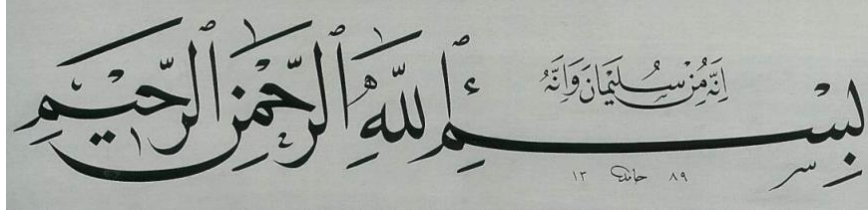 إِنَّهُ مِنْ سُلَيْمَانَ وَإِنَّهُ
بِسْمِ ٱللَّهِ ٱلرَّحْمٰنِ ٱلرَّحِيمِ
٨٩ حامد ١٣